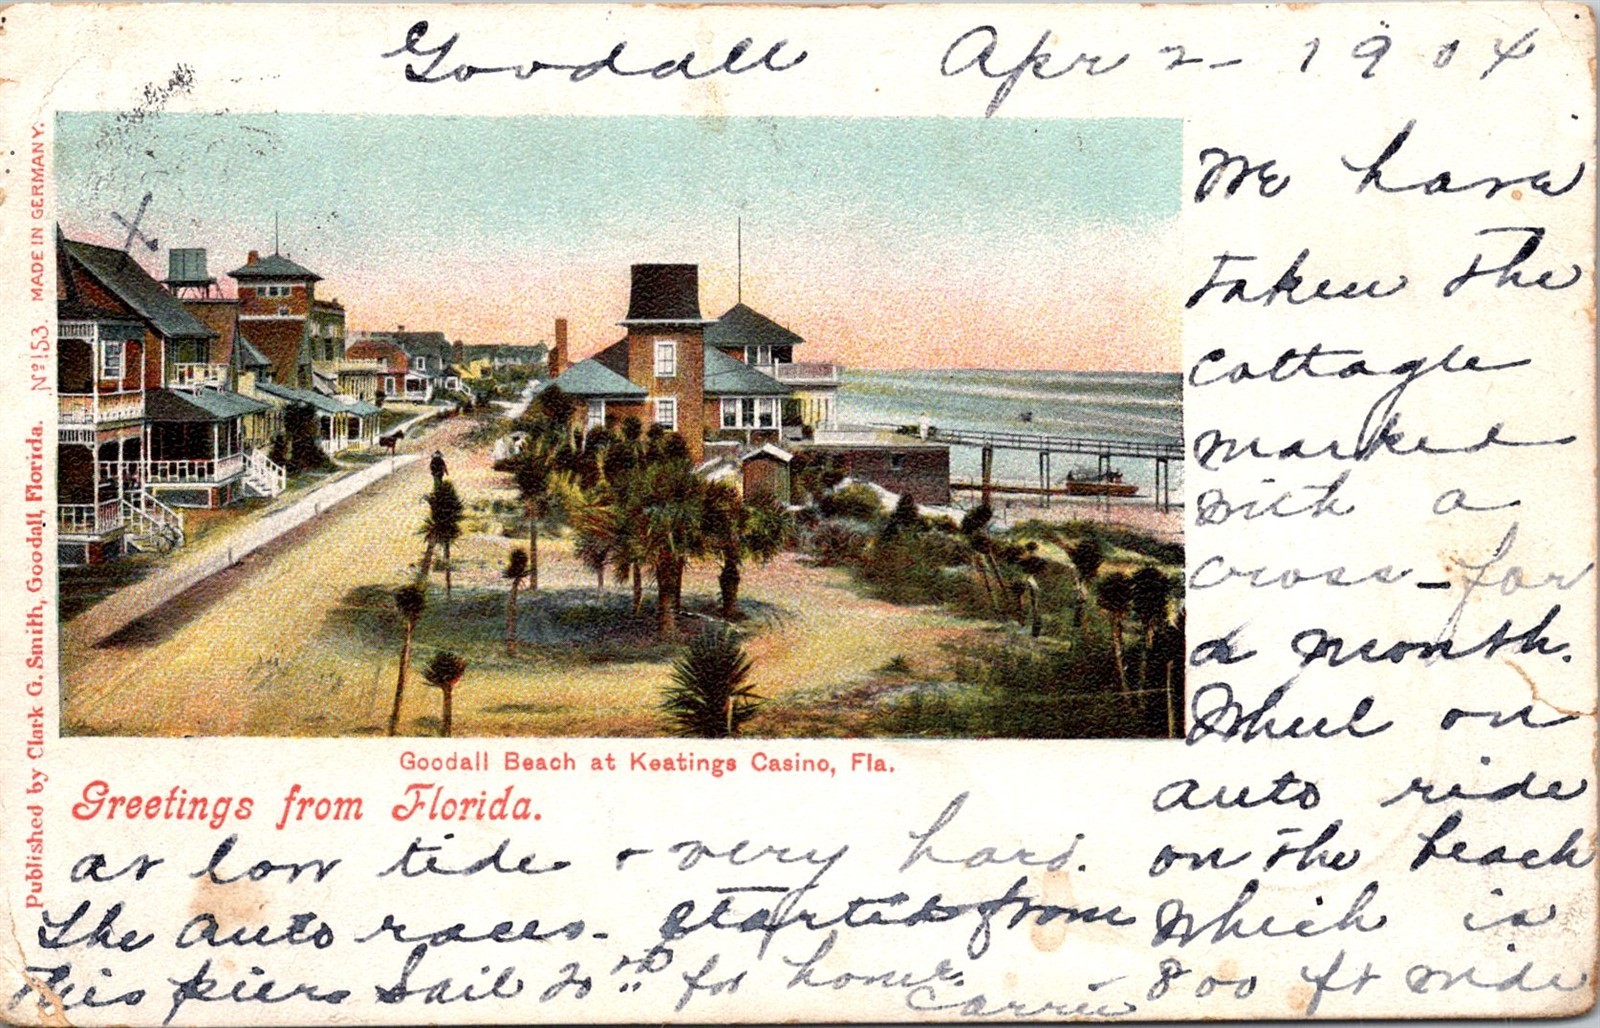 Goodall Apr 2 - 1904
We have
taken the
cottage
marked
with a
cross - for
a month.
Wheel or
auto ride
on the beach
which is
800 ft wide
at low tide + very hard.
The auto races - started from
this pier. Sail 20th for home.
Carrie
Goodall Beach at Keatings Casino, Fla.
Greetings from Florida.
Published by Clark G. Smith, Goodall, Florida. No 153. MADE IN GERMANY.
X